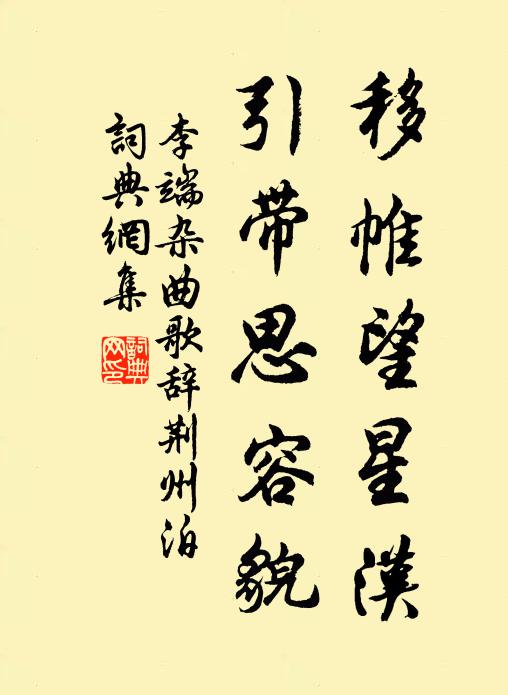 移帷望星漢
引帶思容貌
李端杂曲歌辞荆州泊
詞典網集
詞典网印